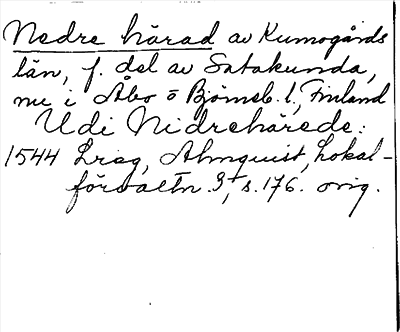 Nedre härad av Kumogårds
län, f. del av Satakunda,
nu i Åbo o Björneb. l., Finland
Udi Nidrehärede:
1544 Lrsg, Almquist, Lokal-
förvaltn. 3, s. 176. orig.